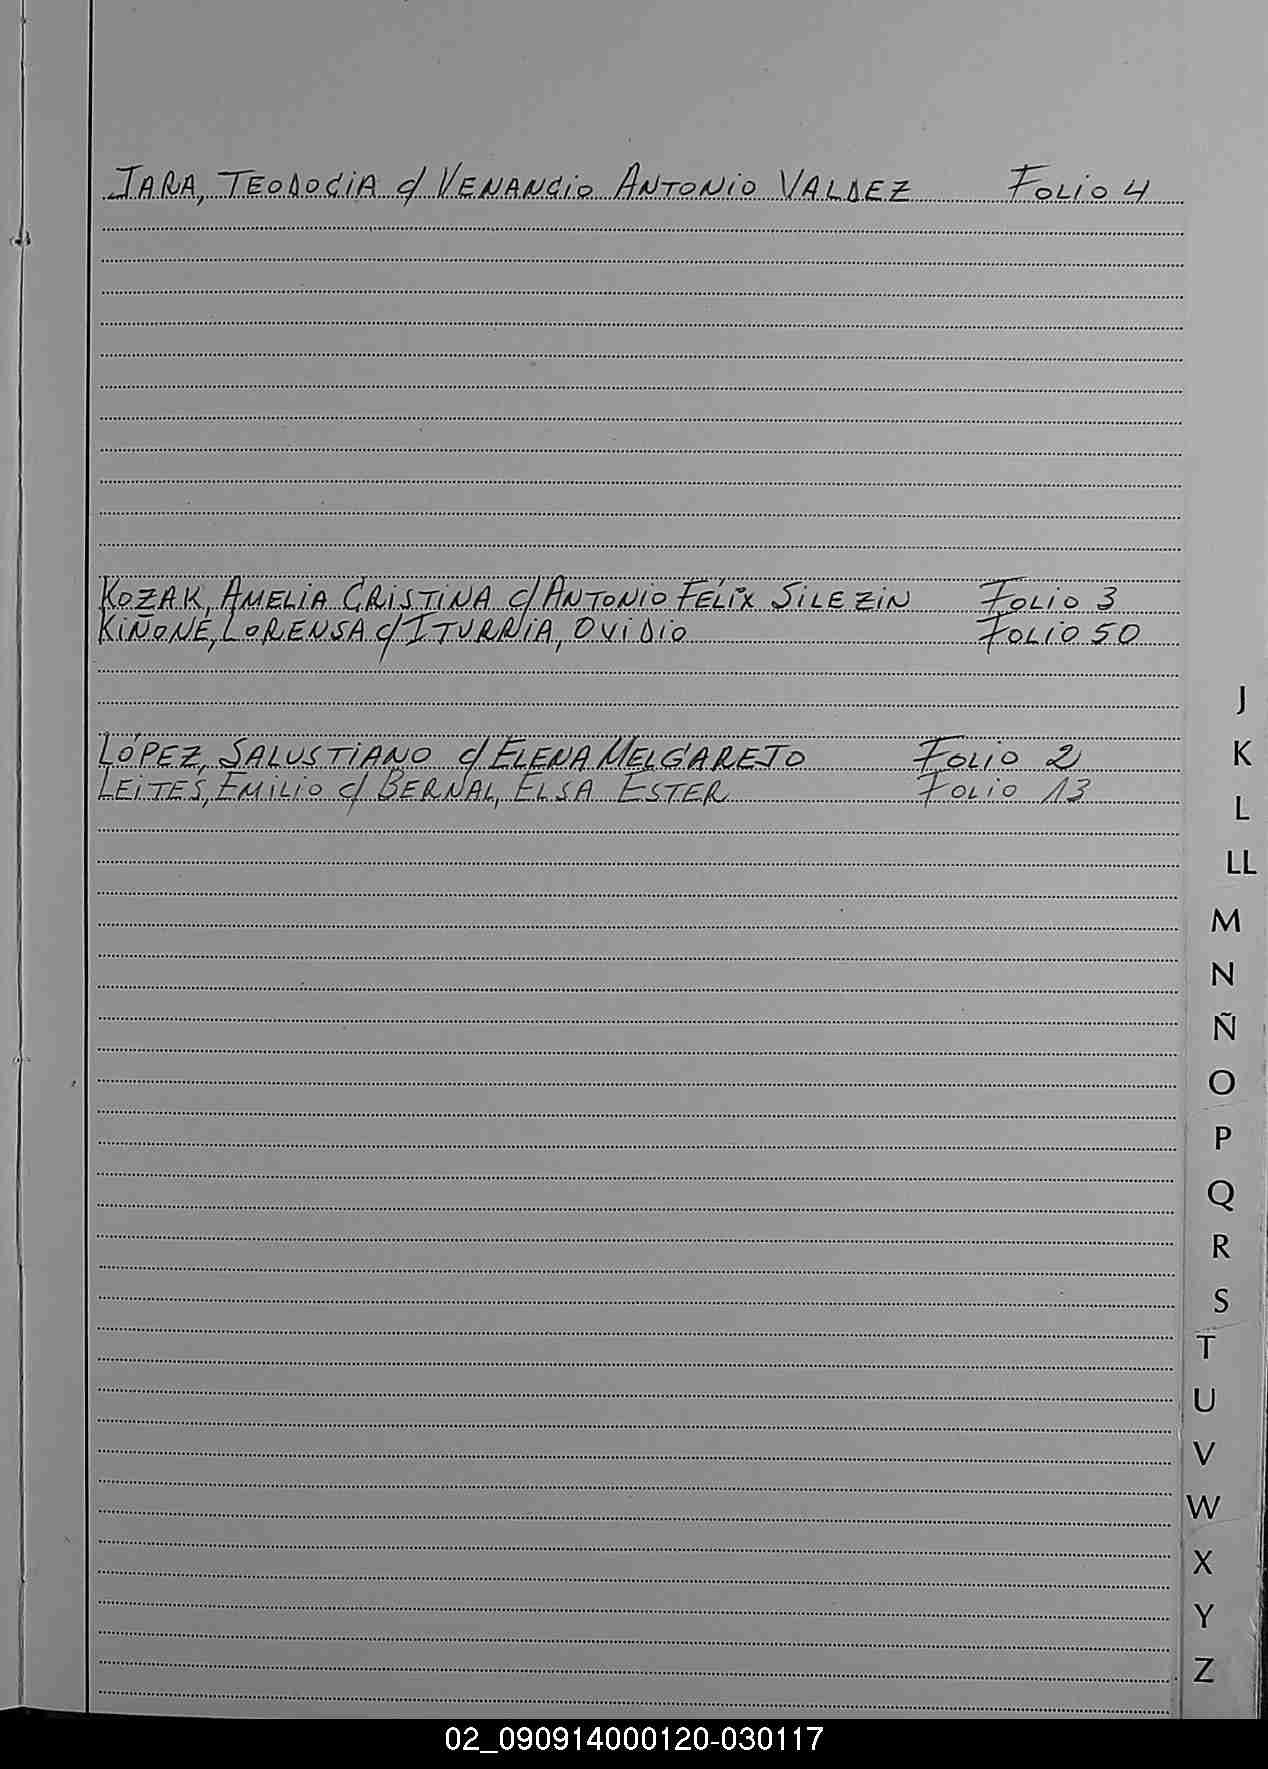 JARA, TEODOCIA c/ VENANCIO ANTONIO VALDEZ Folio 4
KOZAK, AMELIA CRISTINA c/ ANTONIO FÉLIX SILEZIN Folio 3
KIÑONE, LORENSA c/ ITURRIA, OVIDIO Folio 50
LÓPEZ, SALUSTIANO c/ ELENA MELGAREJO Folio 2
LEITES, EMILIO c/ BERNAL, ELSA ESTER Folio 13
J
K
L
LL
M
N
Ñ
O
P
Q
R
S
T
U
V
W
X
Y
Z
02_090914000120-030117